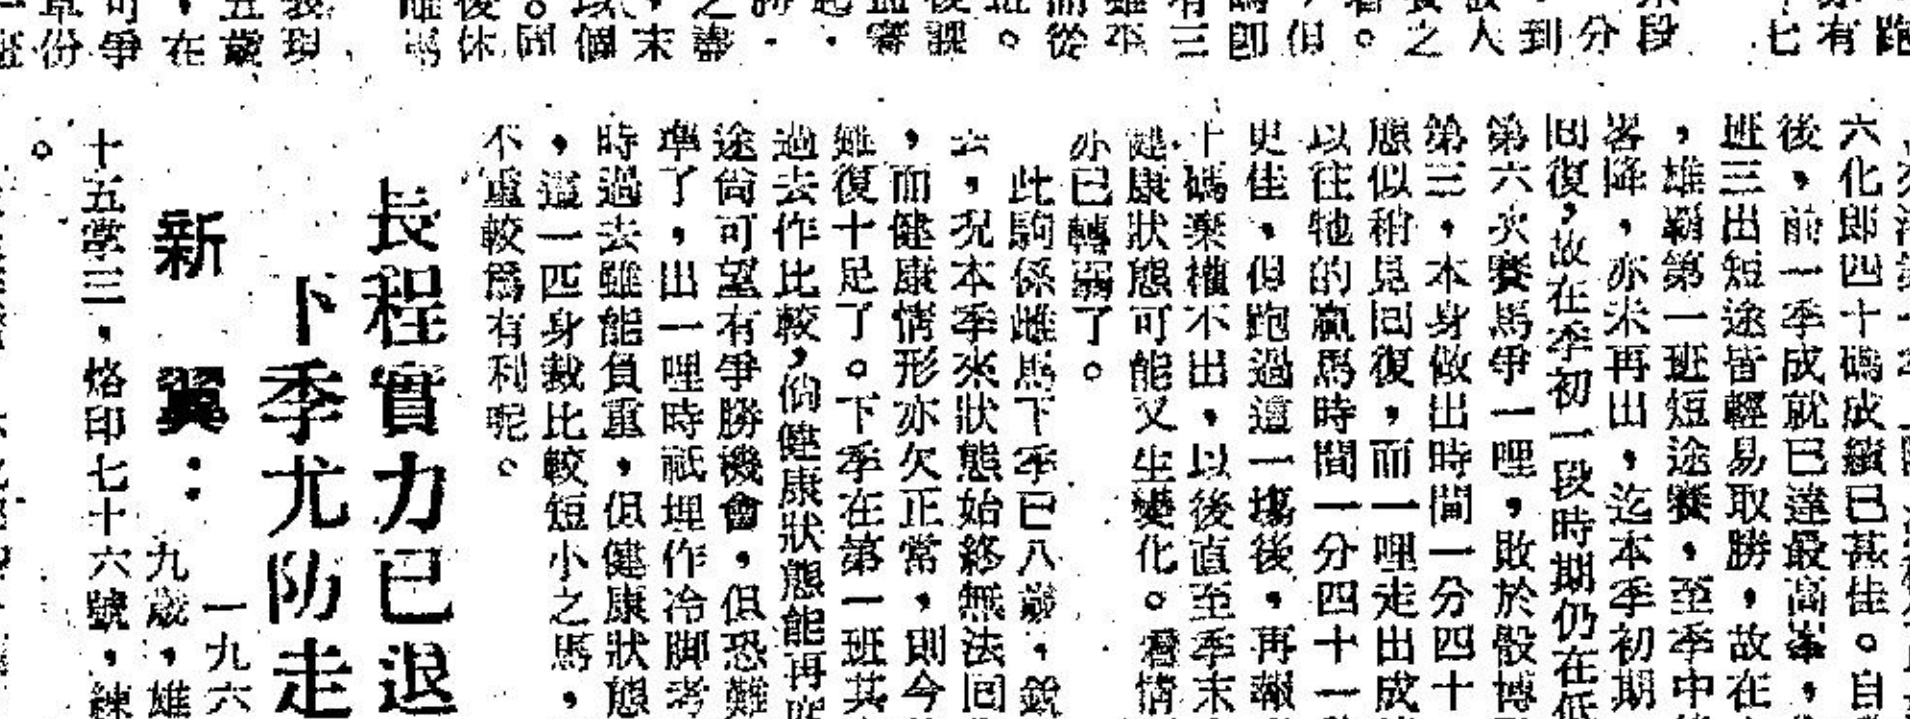 六化即四十碼成績已甚佳。自
後，前一季成就已達最高峯，
班三出短途皆輕易取勝，故在
，雄霸第一班短途賽，至季中
畧降，亦未再出，迄本季初期
回復，故在季初一段時期仍在低
第六次賽馬爭一哩，敗於骰博
第三，本身做出時間一分四十
態似稍見回復，而一哩走出成
以往牠的贏馬時間一分四十一
更佳，但跑過這一塲後，再報
十碼棄權不出，以後直至季末
健康狀態可能又生變化。看情
亦已轉弱了。
此駒係雌馬下季已八歲，銳
去，况本季來狀態始終無法回
，而健康情形亦欠正常，則今
雖復十足了。下季在第一班其
過去作比較，倘健康狀態能再
途尙可望有爭勝機會，但恐難
準了，出一哩時祇埋作冷脚考
時過去雖能負重，但健康狀態
，這一匹身裁比較短小之馬，
不重較爲有利呢。
長程實力已退
下季尤防走
一九六
新翼：九歲，雄
十五掌三，烙印七十六號，練
。